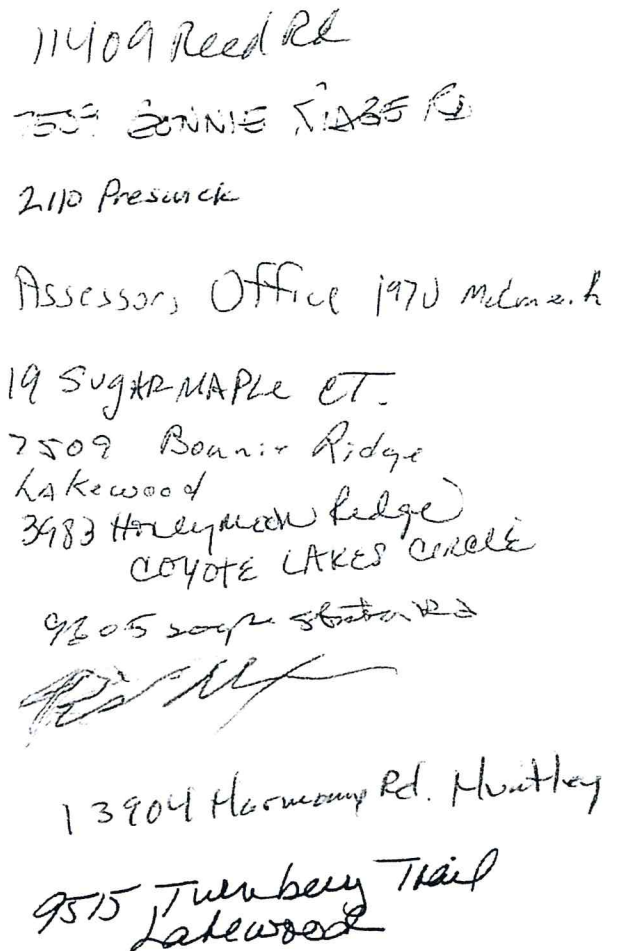 11409 Reed Rd
7509 BONNIE RIDGE RD
2110 Preswick
Assessors Office 1970
19 SUGAR MAPLE CT.
7509 Bonnie Ridge
LAkewood
3983 Honeymoon Ridge
COYOTE LAKES CIRCLE
9305
13904 Harmony Rd. Huntley
9515 Turnbery Trail
Lakewood